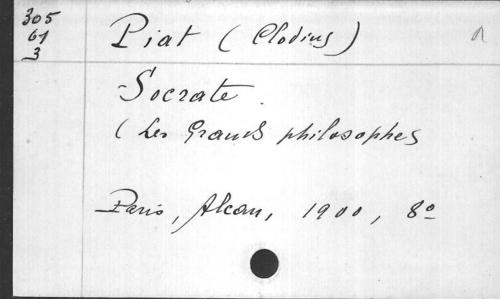 305
61
3
Piat (Clodius)
Socrate.
(Les Grands philosophes
Paris, Alcan, 1900, 8º